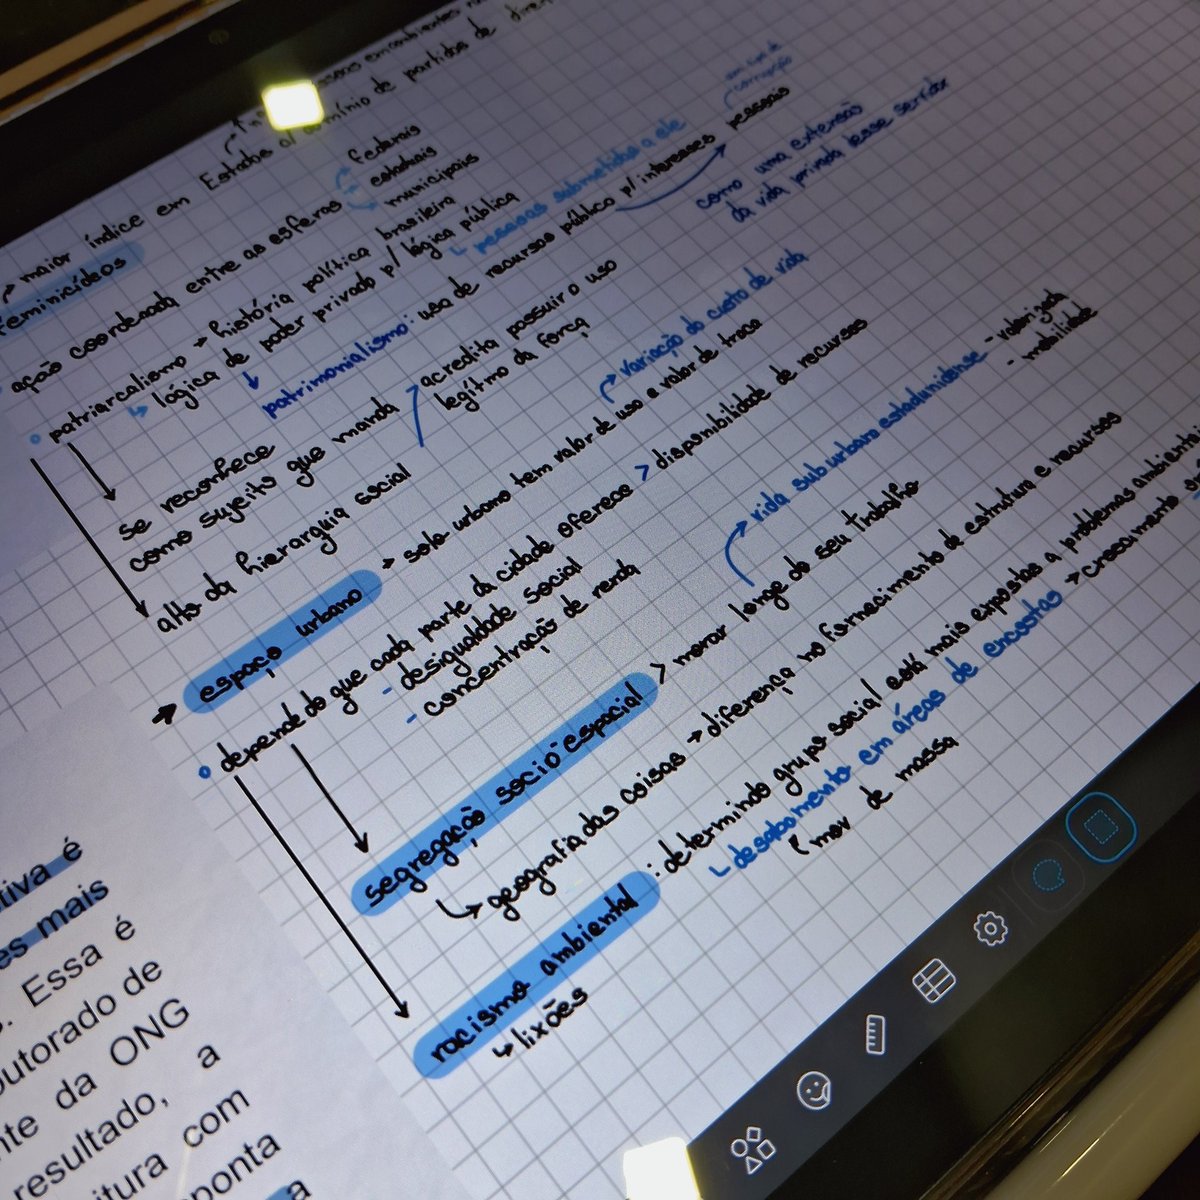 maior índice em Estados domínio de partidos de
feminicídios
ação coordenada entre as esferas
federais
estaduais
municipais
patriarcalismo → história política brasileira
↳ lógica de poder privado p/ lógica pública
↳ pessoas submetidas a ele
patrimonialismo: uso de recursos público p/ interesses pessoais
um tipo de
corrupção
como uma extensão
da vida privada desse servidor
se reconhece
como sujeito que manda
acredita possuir o uso
legítimo da força
alto da hierarquia social
→ espaço urbano → solo urbano tem valor de uso e valor de troca
variação do custo de vida
depende do que cada parte da cidade oferece > disponibilidade de recursos
- desigualdade social
- concentração de renda
segregação socioespacial > morar longe do seu trabalho
vida suburbana estadunidense - valorizada
- mobilidade
↳ geografia das coisas → diferença no fornecimento de estrutura e recursos
racismo ambiental: determindo grupo social está mais expostas a problemas ambientais
↳ desabamento em áreas de encostas → crescimento
mov de massa
↳ lixões
tiva é
es mais
. Essa é
outorado de
nte da ONG
resultado, a
itura com
ponta
a